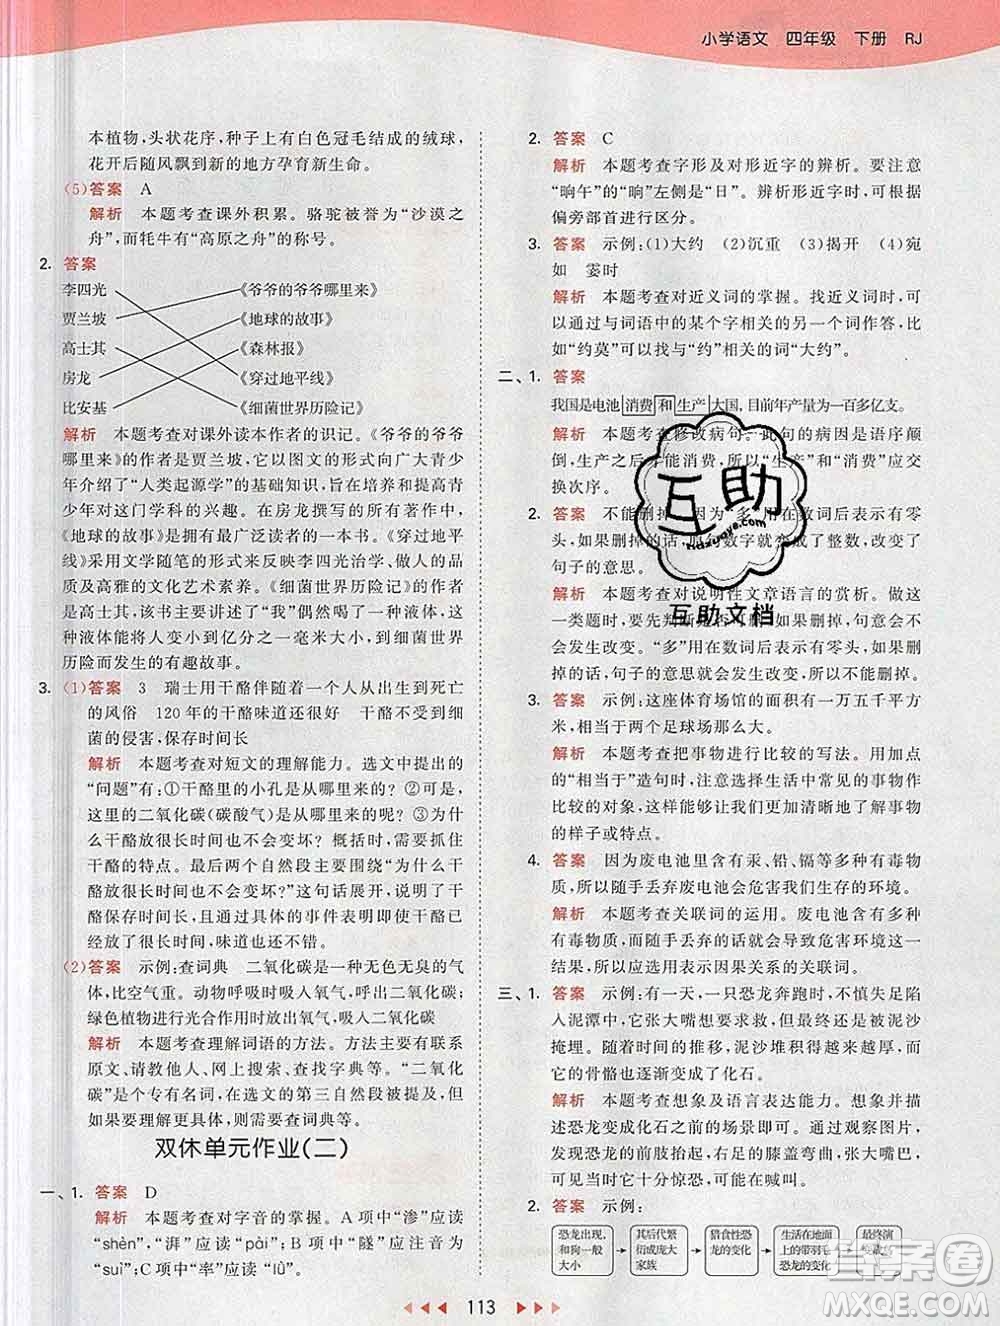 小学语文 四年级 下册 RJ
本植物,头状花序,种子上有白色冠毛结成的绒球,
花开后随风飘到新的地方孕育新生命。
(5)答案 A
解析 本题考查课外积累。骆驼被誉为“沙漠之
舟”,而牦牛有“高原之舟”的称号。
2. 答案
李四光 《爷爷的爷爷哪里来》
贾兰坡 《地球的故事》
高士其 《森林报》
房龙 《穿过地平线》
比安基 《细菌世界历险记》
解析 本题考查对课外读本作者的识记。《爷爷的爷爷
哪里来》的作者是贾兰坡,它以图文的形式向广大青少
年介绍了“人类起源学”的基础知识,旨在培养和提高青
少年对这门学科的兴趣。在房龙撰写的所有著作中,
《地球的故事》是拥有最广泛读者的一本书。《穿过地平
线》采用文学随笔的形式来反映李四光治学严谨、思想
品质及高雅的文化艺术素养。《细菌世界历险记》的作者
是高士其,该书主要讲述了“我”偶然喝了一种液体,这
种液体能将人变小到亿分之一毫米大小,到细菌世界
历险而发生的有趣故事。
3. (1)答案 3 瑞士用干酪伴随着一个人从出生到死亡
的风俗 120年的干酪味道还很好 干酪不受到细
菌的侵害,保存时间长
解析 本题考查对短文的理解能力。选文中提出的
“问题”有:①干酪里的小孔是从哪里来的?②可是,
这里的二氧化碳(碳酸气)是从哪里来的?③为什么
干酪放很长时间也不会变坏? 概括时,需要抓住
干酪的特点。最后两个自然段主要围绕“为什么干
酪放很长时间也不会变坏?”这句话展开,写到了干
酪保存时间长,并且通过具体的事件表明干酪即使
已经放了很长时间,味道也不会变坏。
(2)答案 示例:查词典 二氧化碳是一种无色无臭的气
体,比空气重。动物呼吸时吸入氧气,呼出二氧化碳;
绿色植物进行光合作用时放出氧气,吸入二氧化碳
解析 本题考查理解词语的方法。方法主要有联系
原文、请教他人、网上搜索、查找字典等。“二氧化
碳”是个专有名词,在选文的第三自然段被提及,但
如果要理解更具体,则需要查词典等。
双休单元作业(二)
一、1. 答案 D
解析 本题考查对字音的掌握。A项中“渗”应读
“shèn”,“湃”应读“pài”;B项中“隧”应注音为
“suì”;C项中“率”应读“lǜ”。
2. 答案 C
解析 本题考查字形及对形近字的辨析。要注意
“晌午”的“晌”左侧是“日”。辨析形近字时,可根据
偏旁部首进行区分。
3. 答案 示例:(1)大约 (2)沉重 (3)揭开 (4)宛
如 霎时
解析 本题考查对近义词的掌握。找近义词时,可
以通过与词语中的某个字相关的另一个词作答,比
如“约莫”可以找与“约”相关的词“大约”。
二、1. 答案
我国是电池消费和生产大国,目前年产量为一百多亿支。
解析 本题考查修改病句。此句的病因是语序颠
倒,生产之后才能消费,所以“生产”和“消费”应交
换次序。
2. 答案 不能删掉,因为“多”用在数词后表示有零
头,如果删掉的话,句中数字就变成了整数,改变了
句子的意思。
解析 本题考查对说明性文章语言的赏析。做这
一类题时,要先判断能否删掉。如果删掉,句意就
会发生改变。“多”用在数词后表示有零头,如果删
掉的话,句子的意思就会发生改变,所以不能删掉。
3. 答案 示例:这座体育场馆的面积有一万五千平方
米,相当于两个足球场那么大。
解析 本题考查把事物进行比较的写法。用加点
的“相当于”造句时,注意选择生活中常见的事物作
比较的对象,这样能让读者更加清晰地了解事物
的样子或特点。
4. 答案 因为废电池里有汞、铅、镉等多种有毒物
质,所以随手丢弃废电池会危害人类生存的环境。
解析 本题考查关联词的运用。废电池里有多种
有毒物质,而随手丢弃的话就会危害环境,这
是因果关系,所以选择表示因果关系的关联词。
三、1. 答案 示例:有一天,一只恐龙奔跑时,不慎失足陷
入泥潭中,它张大嘴想要求救,但最终还是被泥沙
掩埋。随着时间的推移,泥沙堆积得越来越厚,它
的骨骼也逐渐变成了化石。
解析 本题考查想象及语言表达能力。想象并描
述恐龙在变成化石之前的场景即可。通过观察图片
发现恐龙的前肢抬起,右脚的膝盖弯曲,张大嘴巴,
可以想到它当时十分惊恐,可能还在大声喊叫。
2. 答案 示例:
恐龙出现,和狗一般大小
其后代繁衍成庞大家族
猎食性恐龙的变化
生活在地面上的带羽毛恐龙的变化
最终演
113
互助
hdzuoye.com
互助文档
答案圈
MXQE.COM